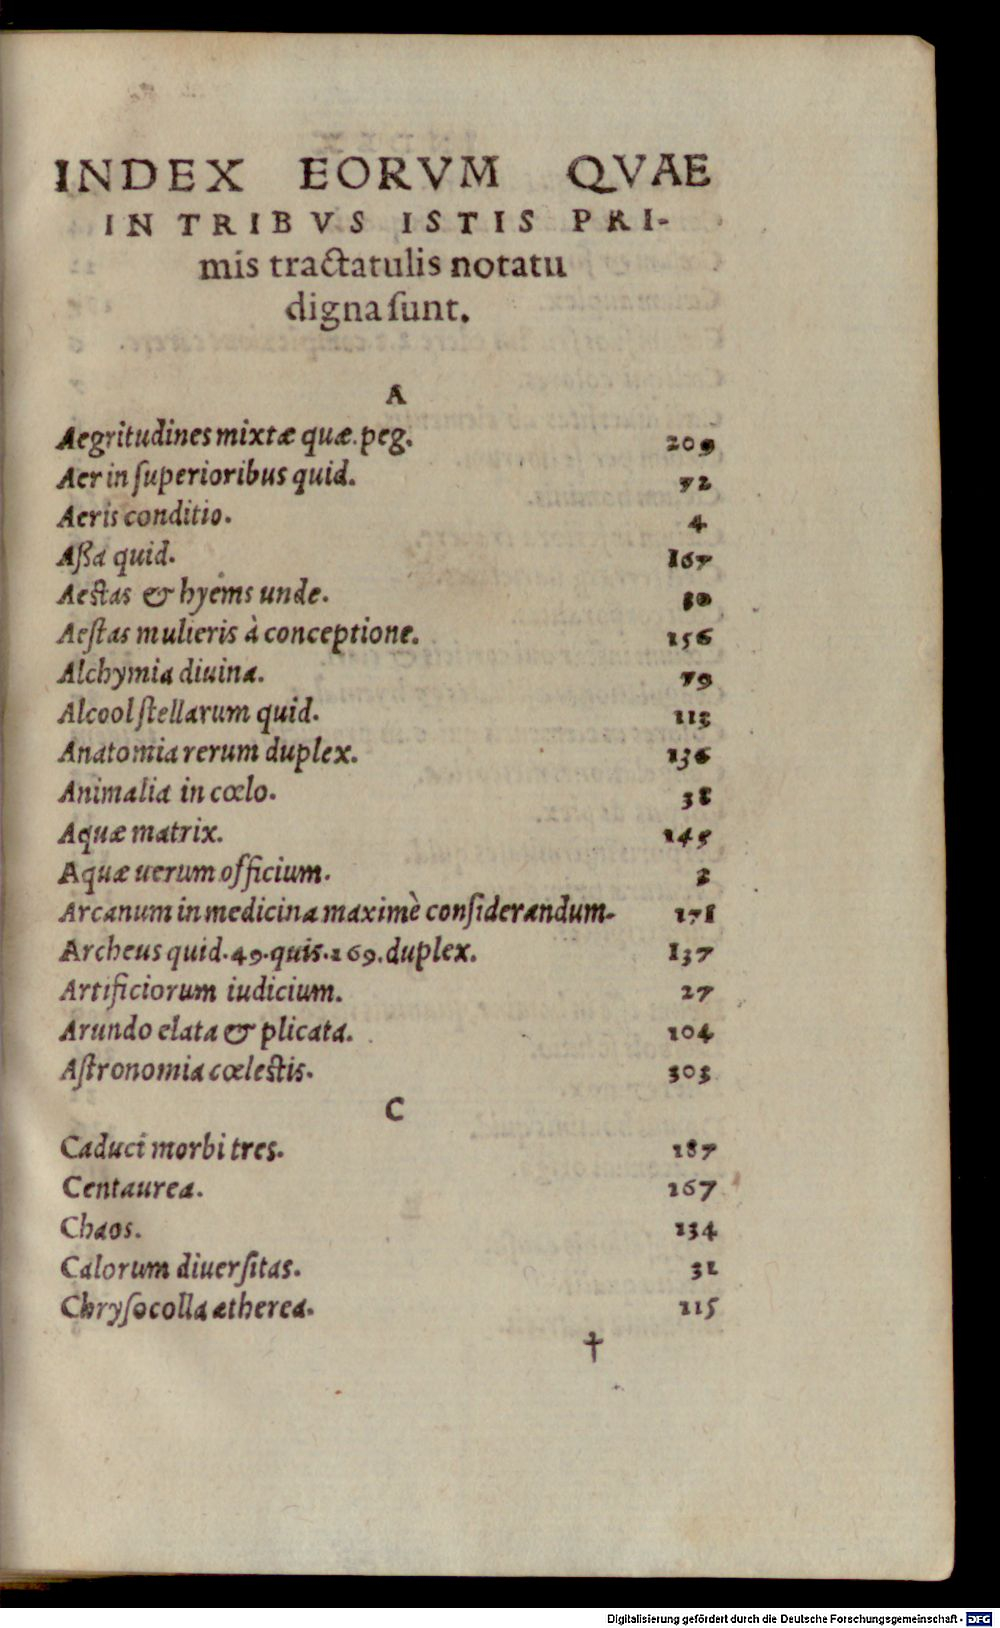 INDEX EORVM QVAE
IN TRIBVS ISTIS PRI-
mis tractatulis notatu
digna ſunt.
A
Aegritudines mixtæ quæ. peg. 209
Aer in ſuperioribus quid. 72
Aeris conditio. 4
Aſſa quid. 167
Aestas & hyems unde.
Aeſtas mulieris à conceptione. 156
Alchymia diuina. 79
Alcool ſtellarum quid. 113
Anatomia rerum duplex. 136
Animalia in cœlo. 38
Aquæ matrix. 145
Aquæ uerum officium. 2
Arcanum in medicina maximè conſiderandum. 178
Archeus quid. 49. quis. 169. duplex. 137
Artificiorum iudicium. 27
Arundo elata & plicata. 104
Aſtronomia cœlestis. 303
C
Caduci morbi tres. 187
Centaurea. 167
Chaos. 134
Calorum diuerſitas. 31
Chryſocolla ætherea. 115
†
Digitalisierung gefördert durch die Deutsche Forschungsgemeinschaft - DFG